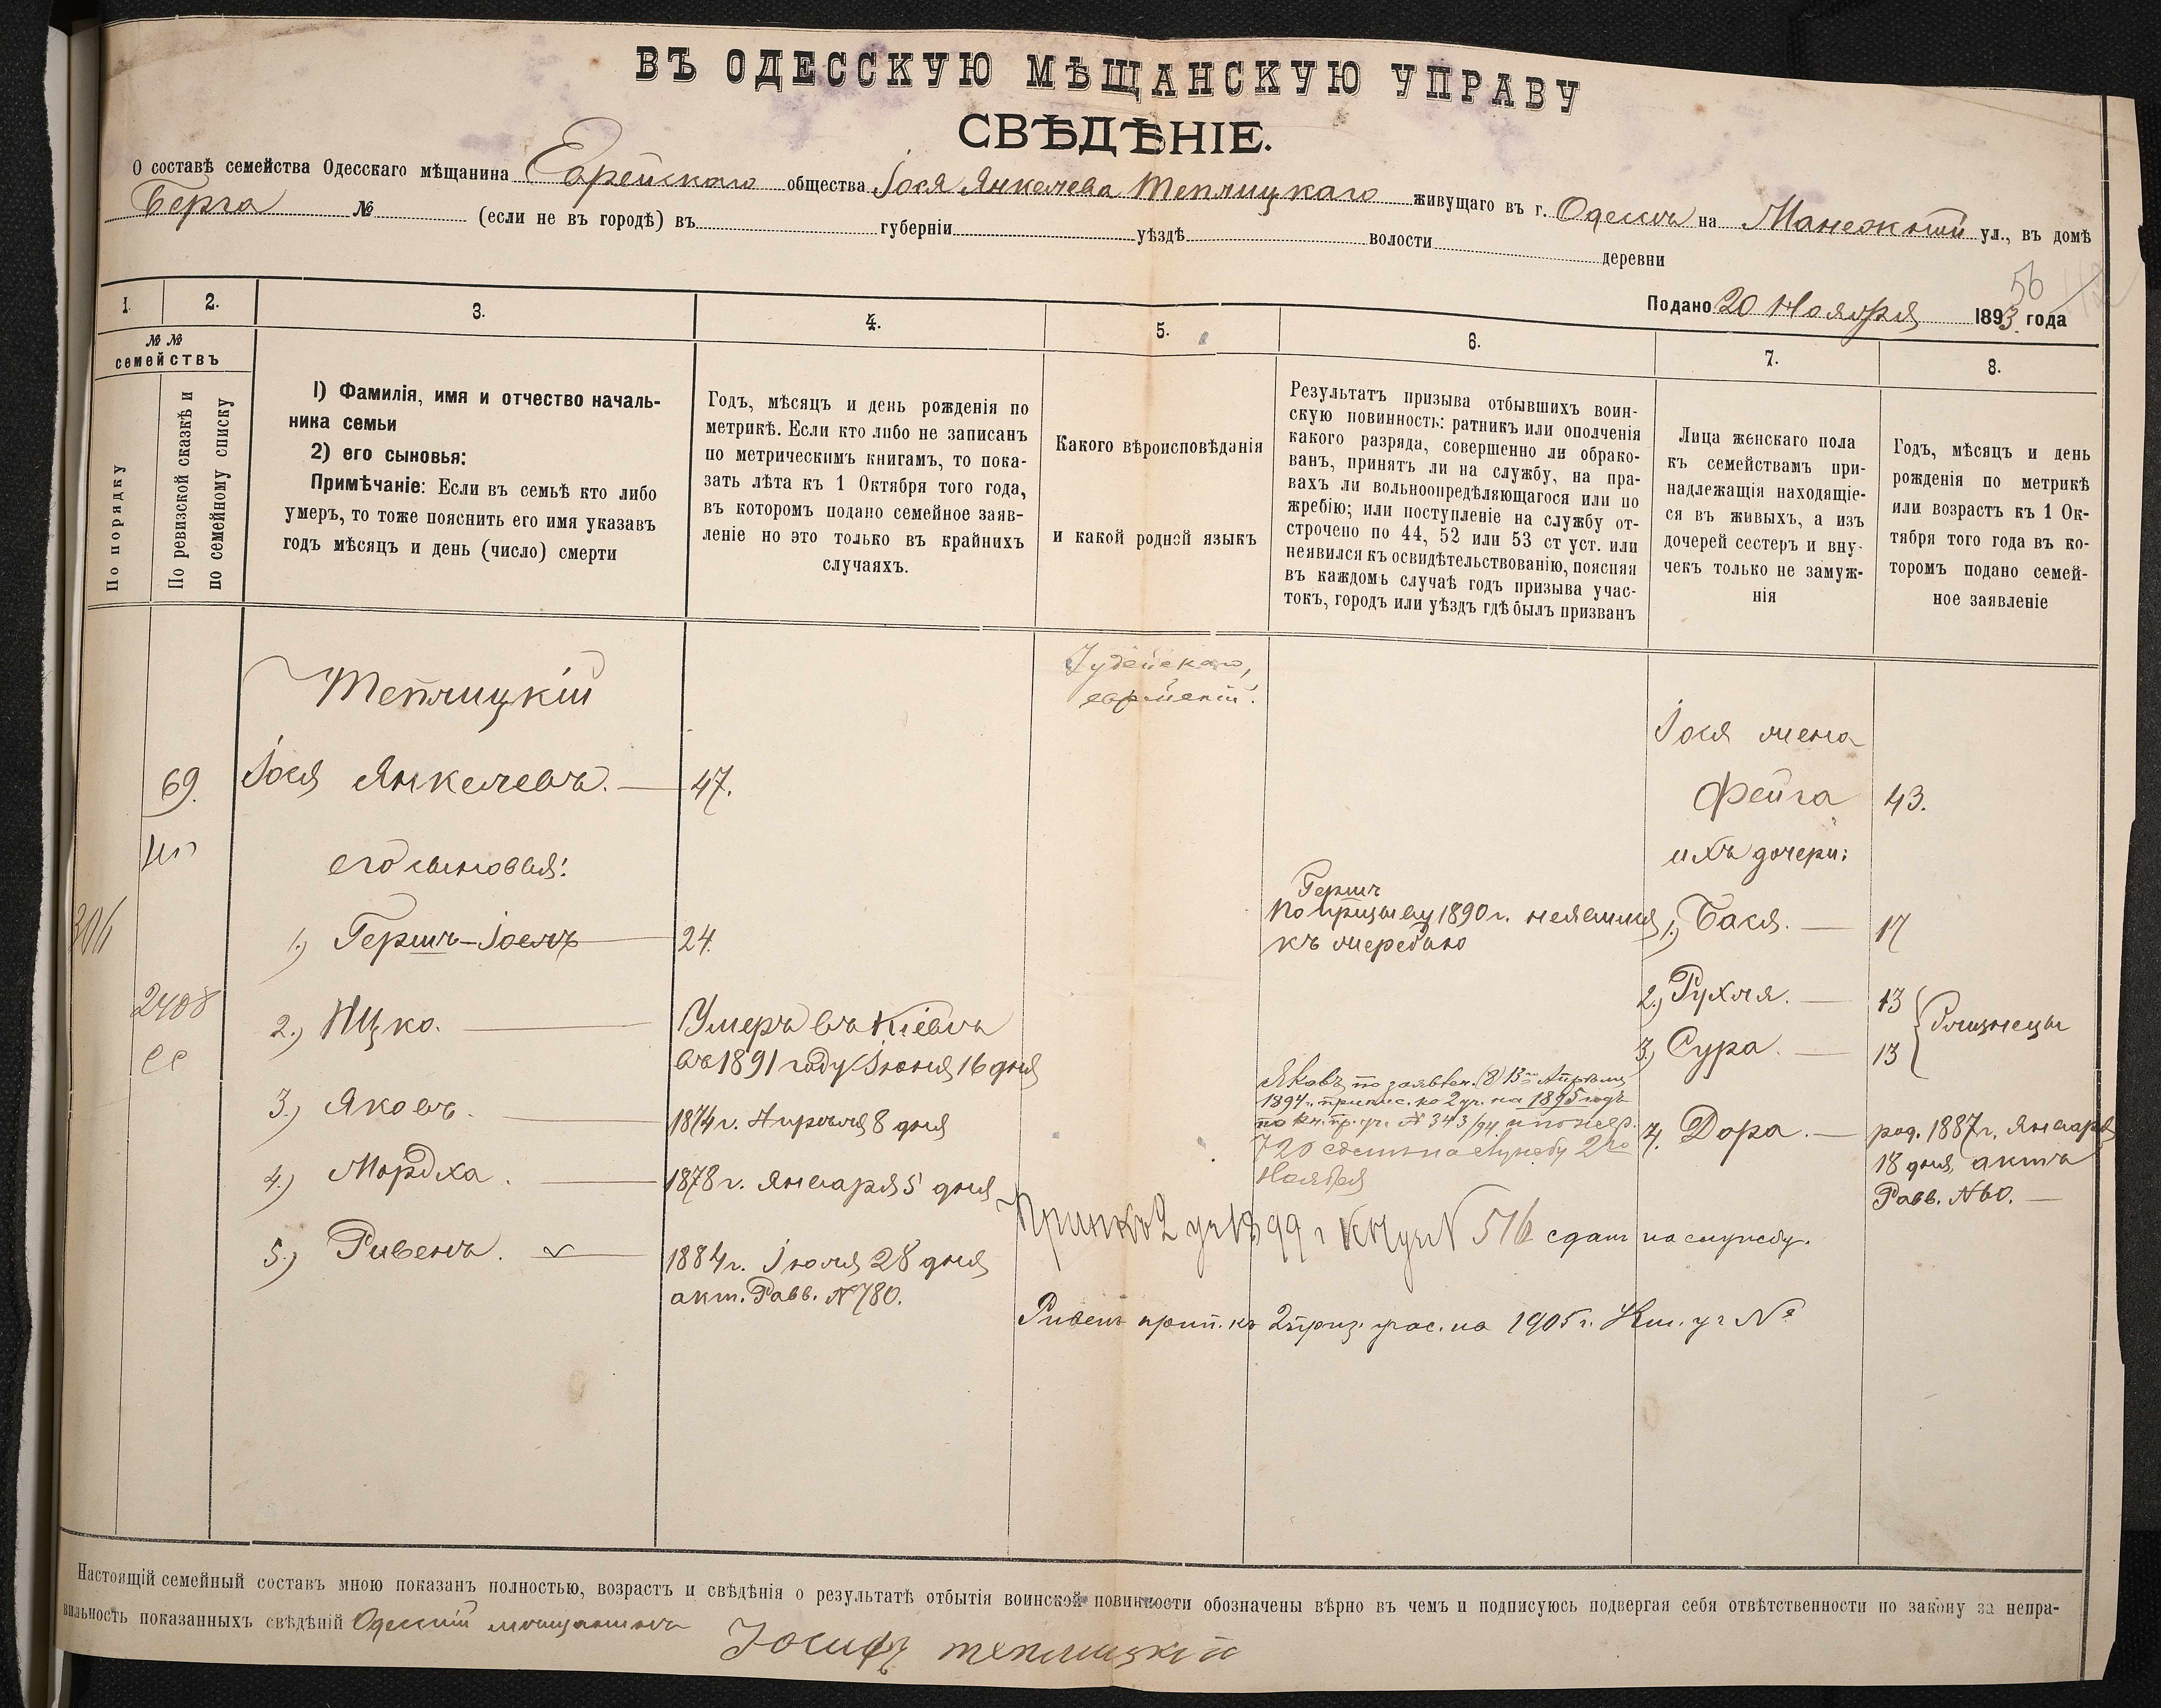 ВЪ ОДЕССКУЮ МѢЩАНСКУЮ УПРАВУ
СВѢДѢНІЕ.
О составѣ семейства Одесскаго мѣщанина Еврейскаго общества Іося Янкелева Теплицкаго живущаго въ г. Одессѣ на Манежной ул., въ домѣ
Берга № (если не въ городѣ) въ губерніи уѣздѣ волости деревни
Подано 20 Ноября 1893 года
56
1. 2. 3. 4. 5. 6. 7. 8.
№№
семействъ
По порядку
По ревизской сказкѣ и
по семейному списку
1) Фамилія, имя и отчество началь-
ника семьи
2) его сыновья:
Примѣчаніе: Если въ семьѣ кто либо
умеръ, то тоже пояснить его имя указавъ
годъ мѣсяцъ и день (число) смерти
Годъ, мѣсяцъ и день рожденія по
метрикѣ. Если кто либо не записанъ
по метрическимъ книгамъ, то пока-
зать лѣта къ 1 Октября того года,
въ которомъ подано семейное заяв-
леніе но это только въ крайнихъ
случаяхъ.
Какого вѣроисповѣданія
и какой родной языкъ
Результатъ призыва отбывшихъ воин-
скую повинность: ратникъ или ополченія
какого разряда, совершенно ли обрако-
ванъ, принятъ ли на службу, на пра-
вахъ ли вольноопредѣляющагося или по
жребію; или поступленіе на службу от-
строчено по 44, 52 или 53 ст уст. или
неявился къ освидѣтельствованію, поясняя
въ каждомъ случаѣ годъ призыва учас-
токъ, городъ или уѣздъ гдѣ былъ призванъ
Лица женскаго пола
къ семействамъ при-
надлежащія находящіе-
ся въ живыхъ, а изъ
дочерей сестеръ и вну-
чекъ только не замуж-
нія
Годъ, мѣсяцъ и день
рожденія по метрикѣ
или возрастъ къ 1 Ок-
тября того года въ ко-
торомъ подано семей-
ное заявленіе
Теплицкій
Іудейскаго,
еврейскій.
69. Іося Янкелевъ. — 47.
Іося жена
Фейга 43.
его сыновья:
ихъ дочери:
1.) Гершъ-Іоель 24.
Гершъ
По призыву 1890 г. неявился
къ жеребью
1.) Бася. — 17
2408
2.) Ицко. — Умеръ въ Кіевѣ
въ 1891 году Іюня 16 дня
2.) Рухля. — 13
3.) Сура. — 13
Близнецы
3.) Яковъ. — 1874 г. Апрѣля 8 дня
Яковъ по заявлен. (8) 13го Апрѣля
1894 г. припис. ко 2 уч. на 1895 годъ
по кн. пр. уч. № 343/94. и по жер.
720 сданъ на службу 2го
Ноября
4. Дора. — род. 1887 г. Января
18 дня, актъ
Равв. № 60. —
4.) Мордха. — 1878 г. Января 5 дня
99 г 516 сданъ на службу.
5.) Ривенъ. — 1884 г. Іюля 28 дня
акт. Равв. № 780.
Ривенъ прип. къ 2 приз. учас. на 1905 г. Кн. уч №
Настоящій семейный составъ мною показанъ полностью, возрастъ и свѣдѣнія о результатѣ отбытія воинской повинности обозначены вѣрно въ чемъ и подписуюсь подвергая себя отвѣтственности по закону за непра-
вильность показанныхъ свѣдѣній Одесскій мѣщанинъ
Іосифъ теплицкій